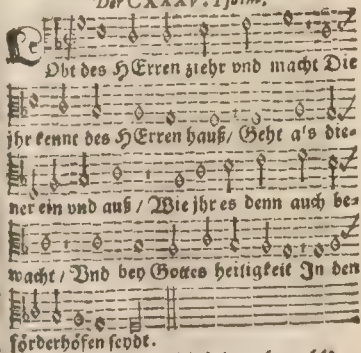 Der CXXXV. Psalm.
LObt des HErren ziehr vnd macht Die
jhr kennt des HErren hauß/ Geht als die-
ner ein vnd auß/ Wie jhr es denn auch be-
wacht/ Vnd bey Gottes heiligkeit In den
förderhöfen seydt.